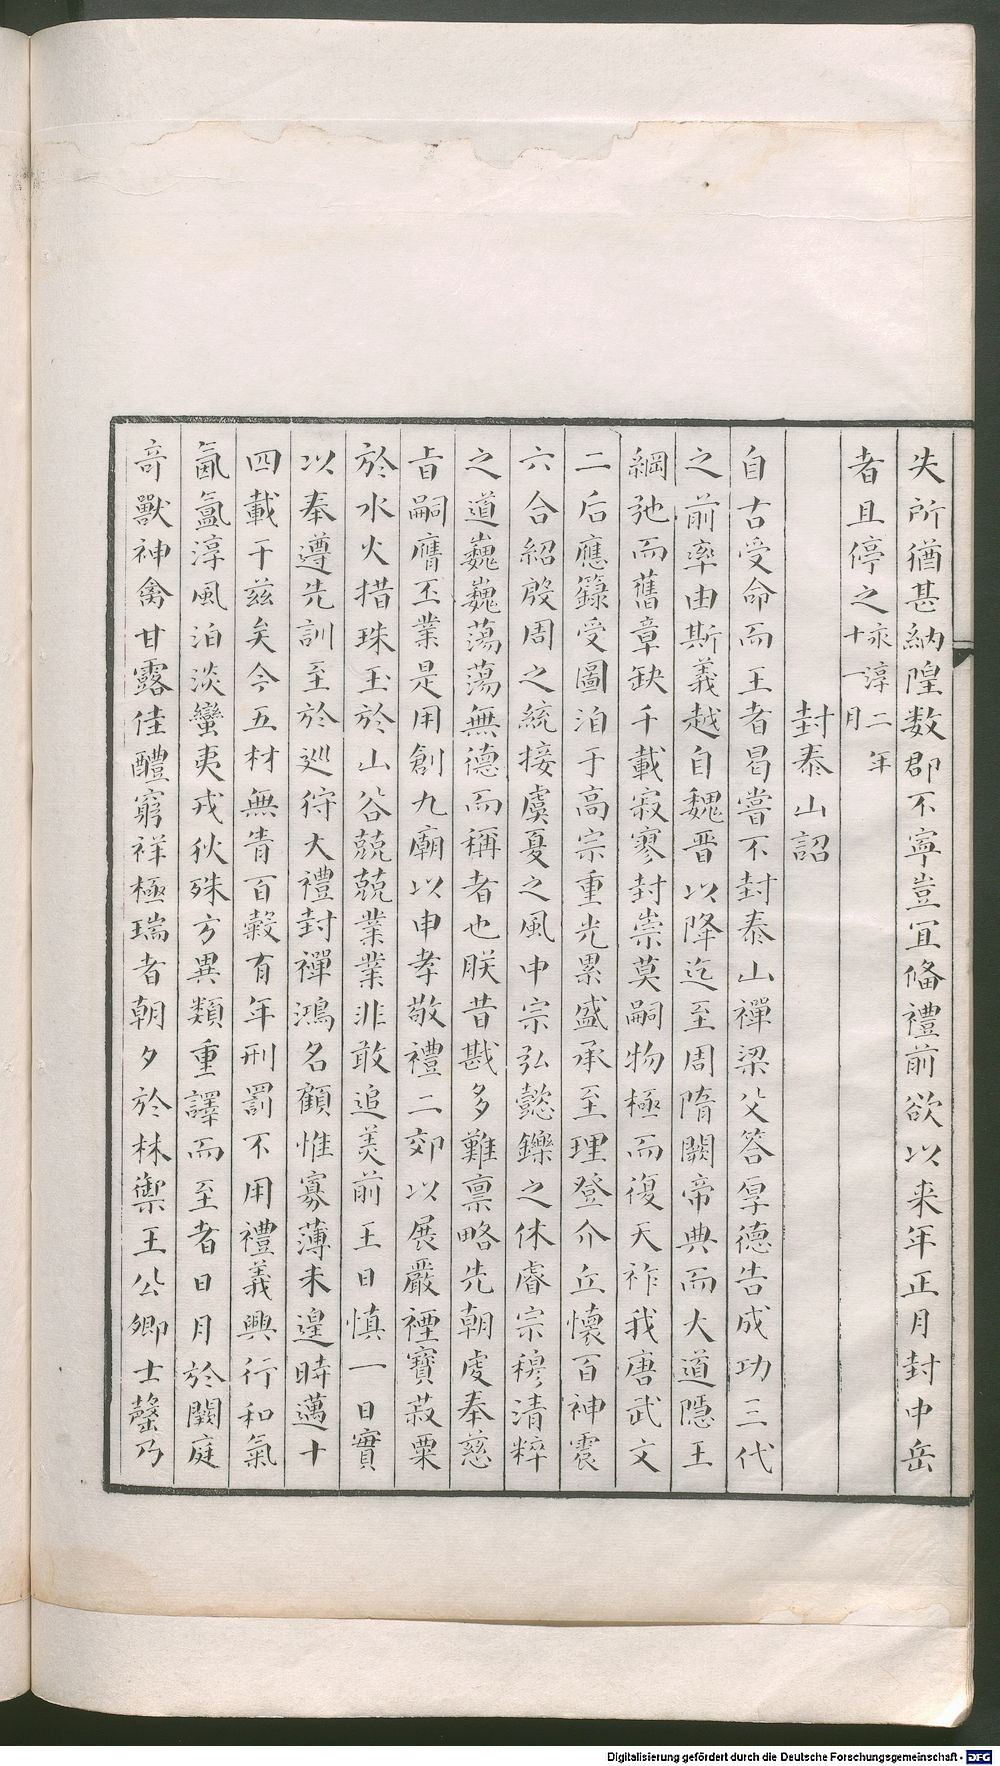 失所猶甚納隍数郡不寧豈宜俻禮前欲以来年正月封中岳
者且停之永淳二年十一月
封泰山詔
自古受命而王者曷嘗不封泰山禪梁父答厚德告成功三代
之前率由斯義越自魏晉以降迄至周隋闕帝典而大道隱王
綱弛而舊章缺千載寂寥封崇莫嗣物極而復天祚我唐武文
二后應籙受圖洎于高宗重光累盛承至理登介丘懷百神震
六合紹殷周之統接虞夏之風中宗弘懿鑠之休睿宗穆清粹
之道巍巍蕩蕩無德而稱者也朕昔戡多難禀略先朝虔奉慈
旨嗣膺丕業是用創九廟以申孝敬禮二郊以展嚴禋寶菽粟
於水火措珠玉於山谷兢兢業業非敢追美前王日慎一日實
以奉遵先訓至於巡狩大禮封禪鴻名顧惟寡薄未遑時邁十
四載于兹矣今五材無眚百穀有年刑罰不用禮義興行和氣
氤氳淳風泊淡蠻夷戎狄殊方異類重譯而至者日月於闕庭
奇獸神禽甘露佳醴窮祥極瑞者朝夕於林禦王公卿士罄乃
Digitalisierung gefördert durch die Deutsche Forschungsgemeinschaft - DFG